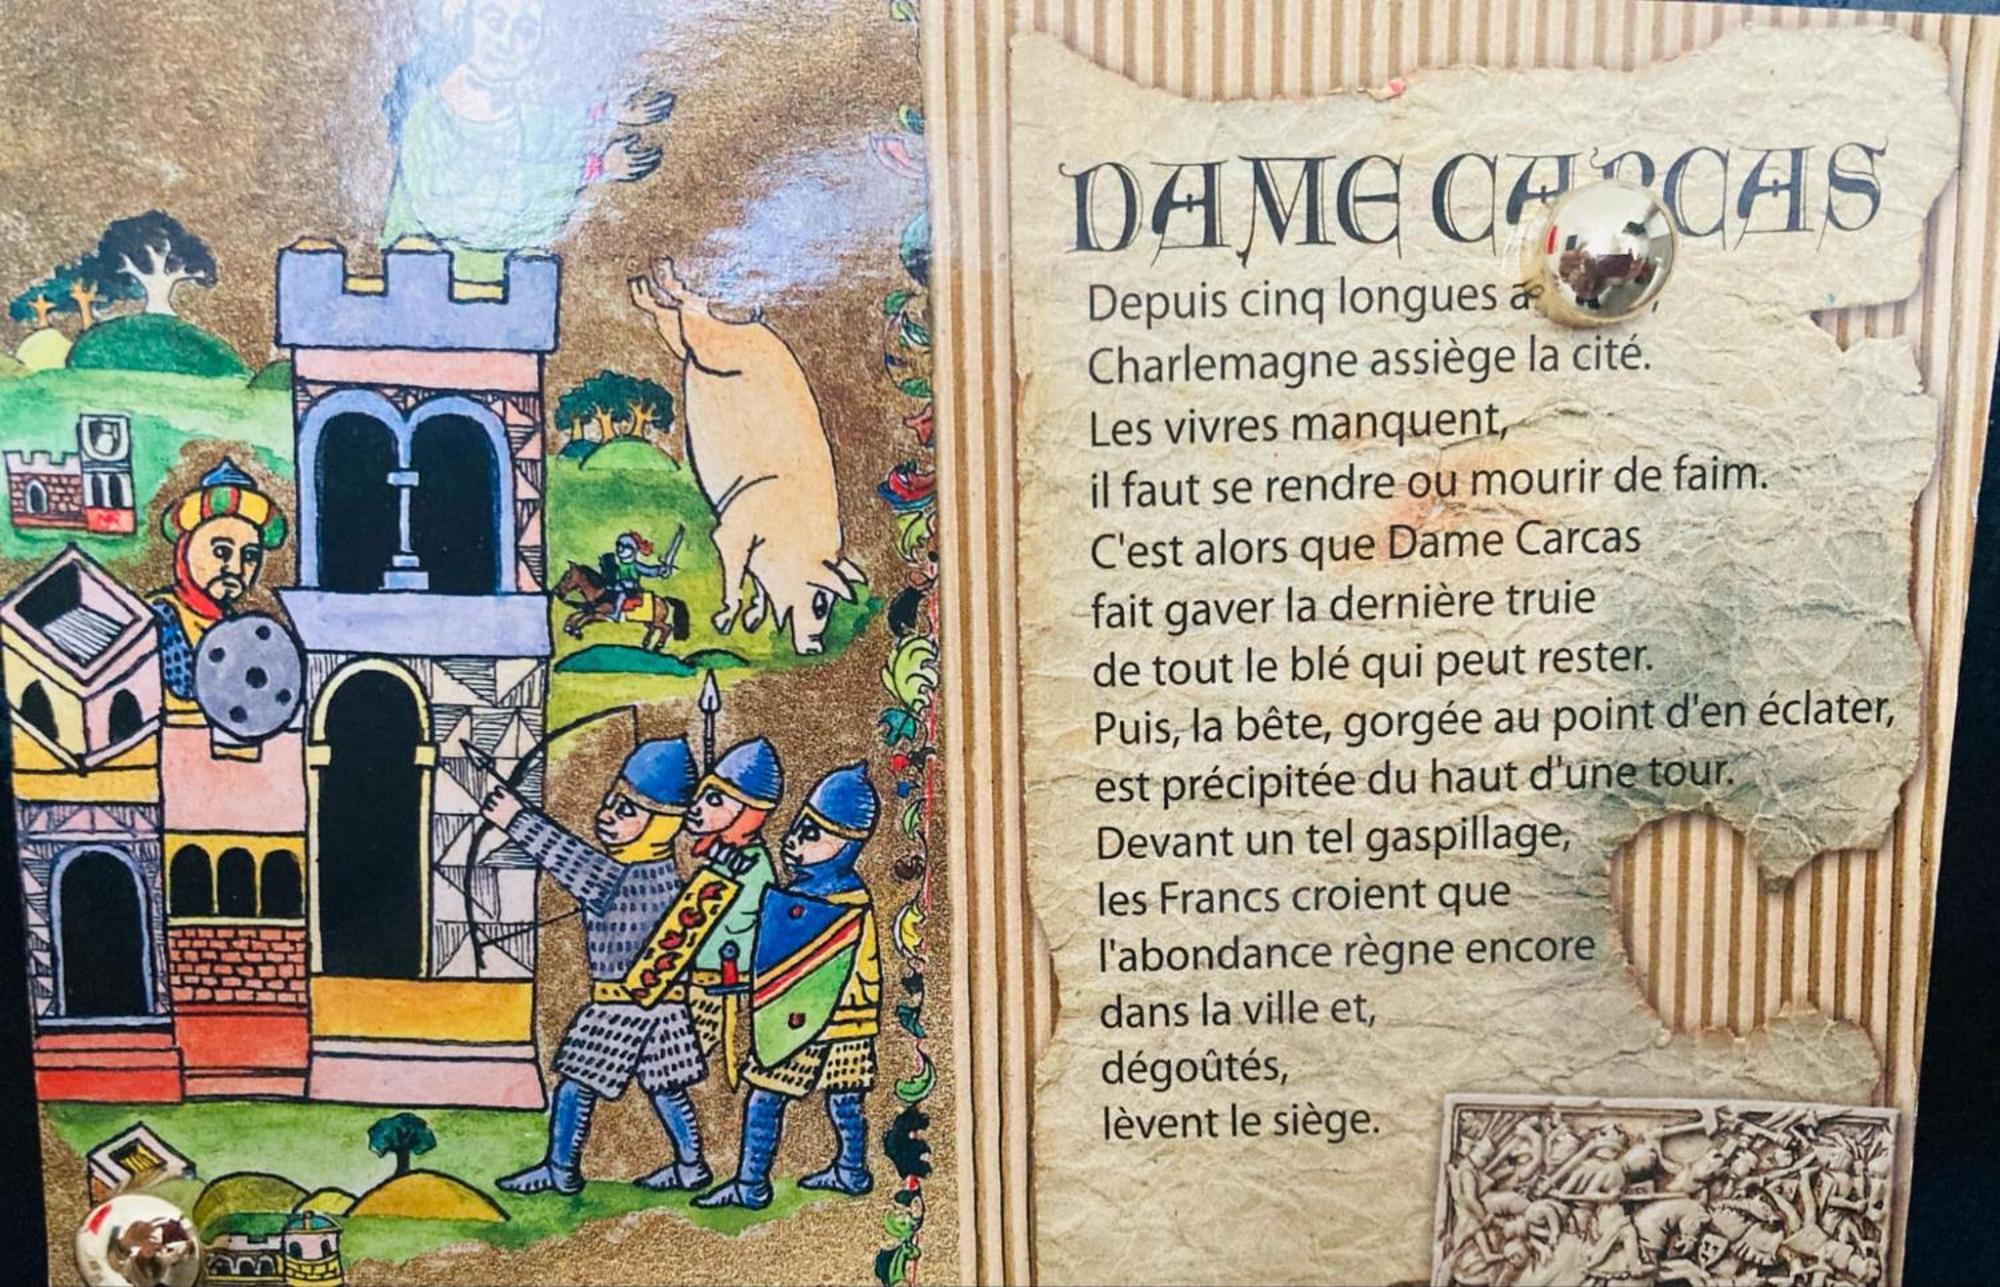 DAME CARCAS
Depuis cinq longues
Charlemagne assiège la cité.
Les vivres manquent,
il faut se rendre ou mourir de faim.
C'est alors que Dame Carcas
fait gaver la dernière truie
de tout le blé qui peut rester.
Puis, la bête, gorgée au point d'en éclater,
est précipitée du haut d'une tour.
Devant un tel gaspillage,
les Francs croient que
l'abondance règne encore
dans la ville et,
dégoûtés,
lèvent le siège.